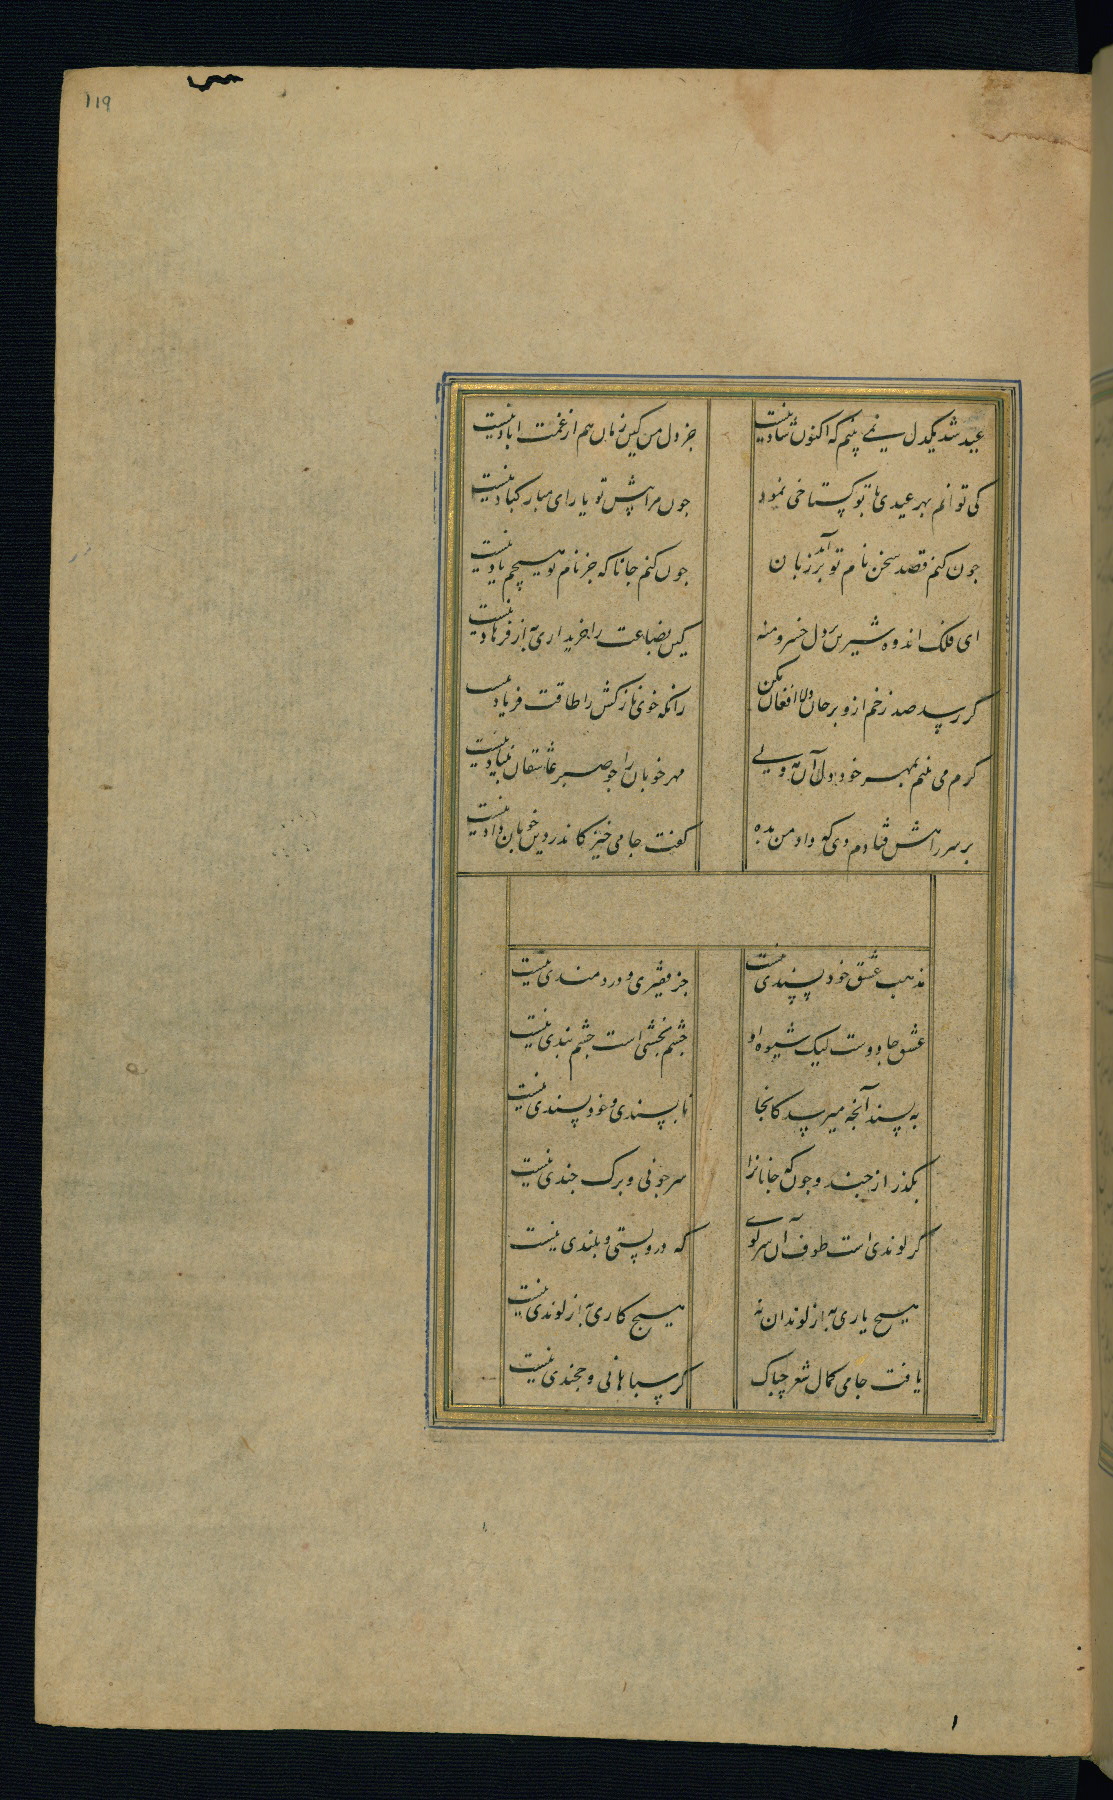 119
عید شد یکدل نمی بینم که اکنون شاد نیست
جز دل من کین زمان هم از غمت اباد نیست
کی توانم بهر عیدی با تو گستاخی نمود
جون مرا پیش تو یارای مبارکباد نیست
جون کنم قصد سخن نام تو آید بر زبان
جون کنم جانا که جز نام تو هیچم یاد نیست
ای فلک اندوه شیرین بر دل خسرو منه
کین بضاعت را خریداری به از فرهاد نیست
گر رسد صد زخم ازو بر جان دلا افغان مکن
زانکه خوی نازکش را طاقت فریاد نیست
گرم می بینم بمهر خود دل آن مه ولی
مهر خوبان را جو صبر عاشقان بنیاد نیست
بر سر راهش فتادم دی که داد من بده
گفت جامی خیز کاندر دین خوبان داد نیست
مذهب عشق خود پسندی نیست
جز فقیری و دردمندی نیست
عشق جادوست لیک شیوه او
جشم بخشی است جشم بندی نیست
به پسند آنجه میرسد کانجا
ناپسندی و خود پسندی نیست
بگذر از جند و جون که جانانرا
سر جونی و برک جندی نیست
گر لوندی است طوف آن سر کوی
که درو پستی و بلندی نیست
هیج یاری به از لوندان نه
هیج کاری به از لوندی نیست
یافت جامی کمال شعر جباک
گر سپاهانی و خجندی نیست